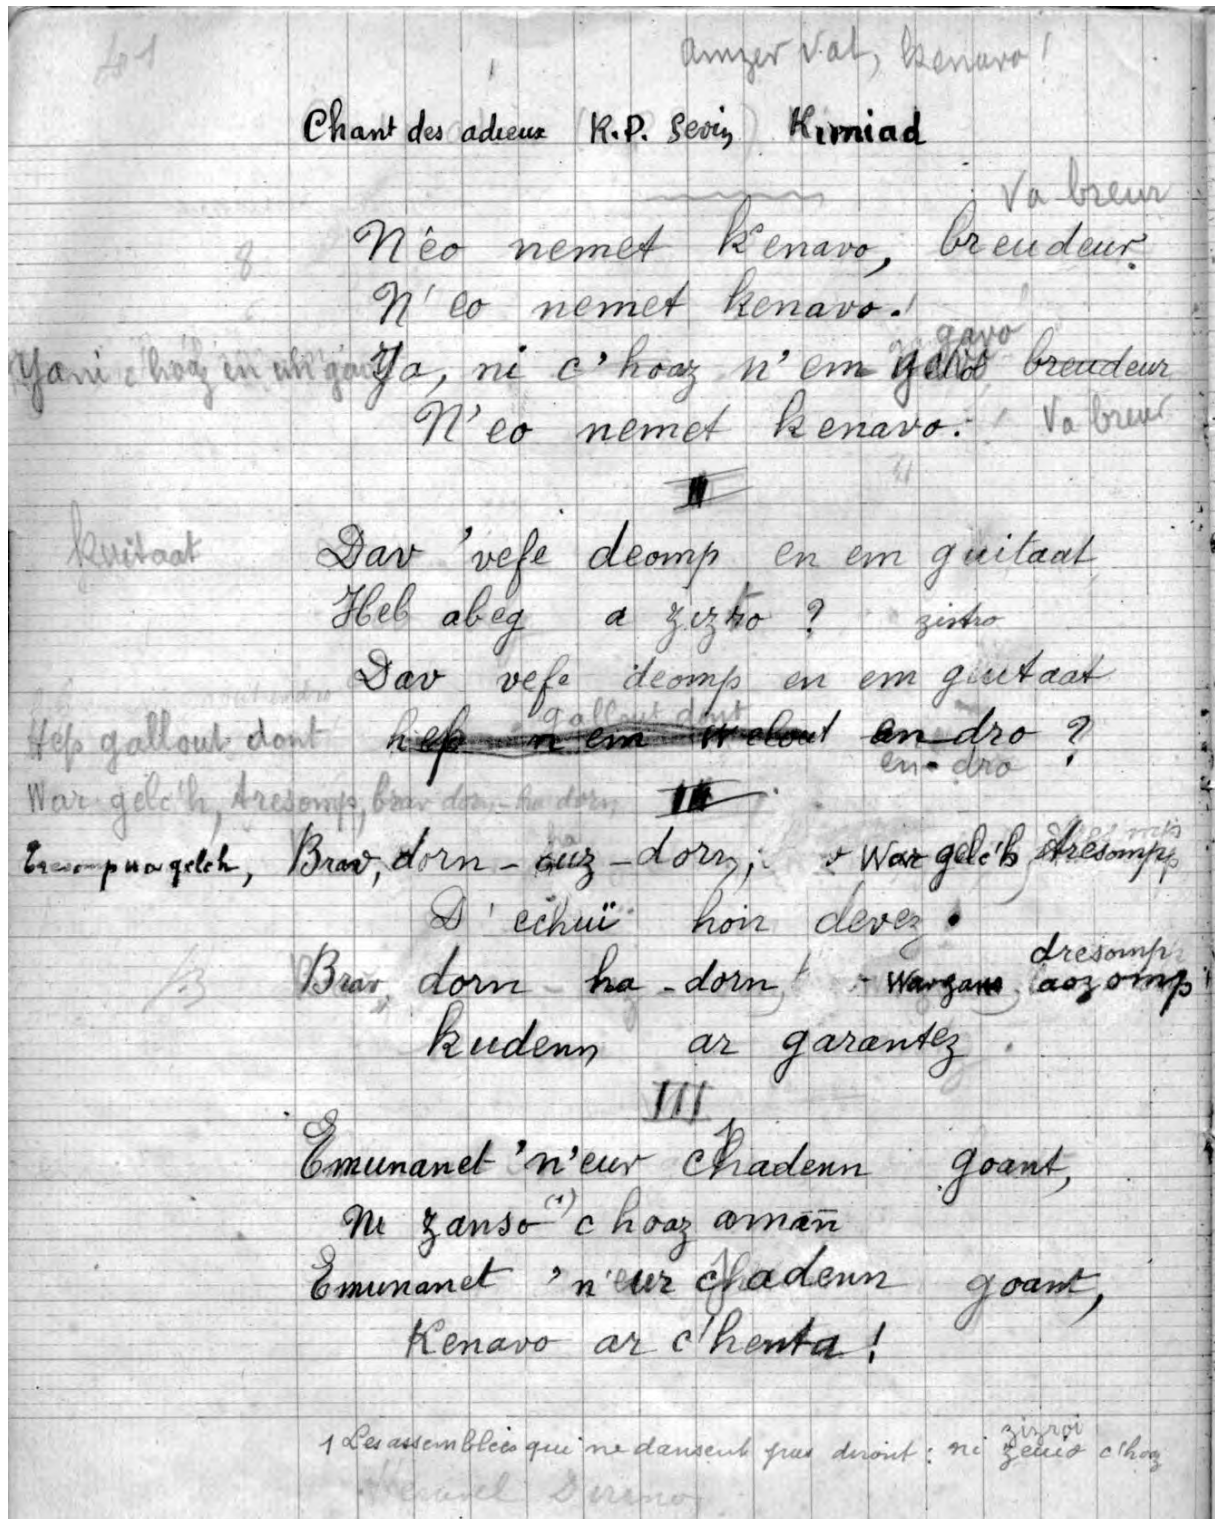 amzer vat, kenavo!
Chant des adieux (R.P. Sevin) Kimiad
Va breur
N'eo nemet kenavo, breudeur.
N'eo nemet kenavo.
gavo
Ya, ni c'hoaz n'em breudeur
N'eo nemet kenavo. Va breur
II
kuitaat Dav 'vefe deomp en em guitaat
Heb abeg a zizro ? zistro
Dav vefe deomp en em guitaat
gallout dont
Hep gallout dont hep n'em an-dro ?
en-dro
War gelc'h, tresomp, brav dorn-ha dorn
III
Tresomp war gelch, Brav, dorn - ouz - dorn, War gelc'h tresomp
D'echuï hon devez.
dresomp
Brav, dorn - ha - dorn, aozomp
kudenn ar garantez.
III
Emunanet 'n'eur chadenn goant,
Ni zanso (1) c'hoaz amañ
Emunanet 'n'eur chadenn goant,
Kenavo ar c'henta !
zizroi
1 Les assemblées qui ne dansent pas diront : ni c'hoaz